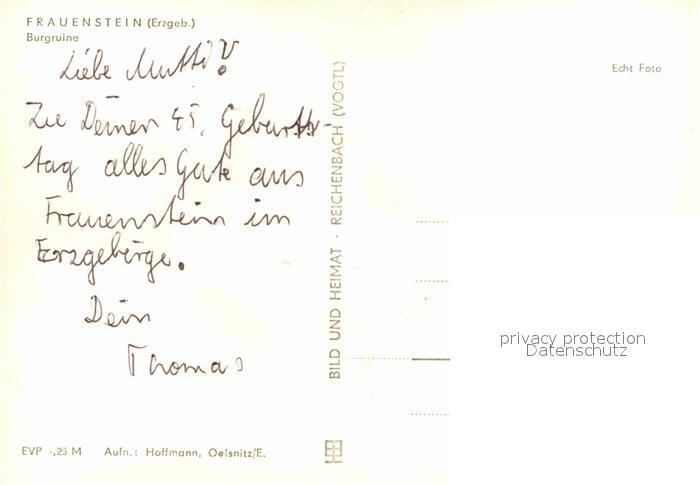 FRAUENSTEIN (Erzgeb.)
Burgruine
Liebe Mutti!
Zu Deinen 45. Geburts-
tag alles Gute aus
Frauenstein im
Erzgebirge.
Dein
Thomas
EVP -,25 M Aufn.: Hoffmann, Oelsnitz/E.
BILD UND HEIMAT · REICHENBACH (VOGTL)
Echt Foto
privacy protection
Datenschutz